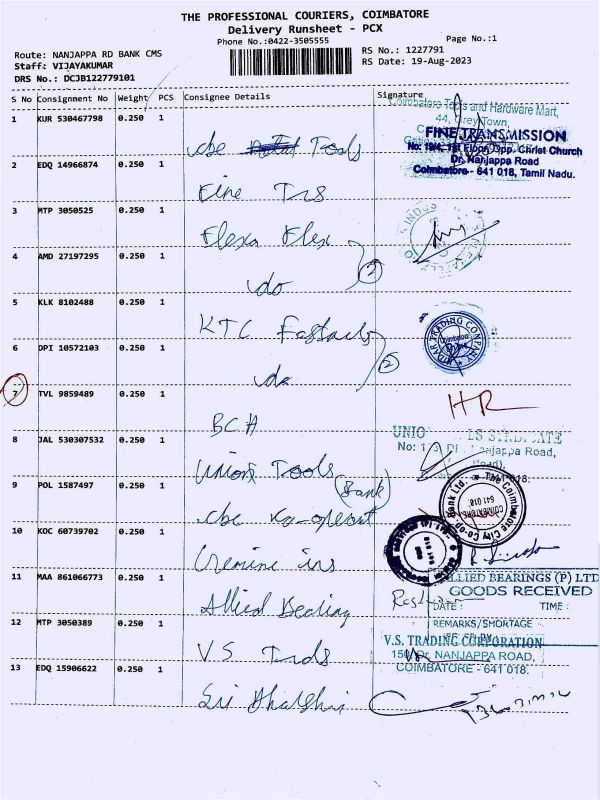 THE PROFESSIONAL COURIERS, COIMBATORE
Delivery Runsheet - PCX
Phone No.:0422-3505555
Page No.:1
Route: NANJAPPA RD BANK CMS
RS No.: 1227791
Staff: VIJAYAKUMAR
RS Date: 19-Aug-2023
DRS No.: DCJB122779101
S No Consignment No Weight PCS Consignee Details Signature
Coimbatore Tools and Hardware Mart,
44, Grey Town,
1 KUR 530467798 0.250 1 cbe Tools
FINE TRANSMISSION
1st Floor, Opp. Christ Church
Dr. Nanjappa Road
Coimbatore - 641 018, Tamil Nadu.
2 EDQ 14966874 0.250 1 Fine Trs
3 MTP 3050525 0.250 1 Flexo Flex
(2)
4 AMD 27197295 0.250 1 do
5 KLK 8102488 0.250 1 KTC
TRADING COMPANY
(2)
6 DPI 10572103 0.250 1 do
7 TVL 9859489 0.250 1 BCH HR
8 JAL 530307532 0.250 1 Union Tools
Nanjappa Road,
9 POL 1587497 0.250 1 cbe (Bank)
The Coimbatore City Co-op. Bank Ltd.
COIMBATORE
641 018
10 KOC 60739702 0.250 1
11 MAA 861066773 0.250 1 Allied Bearing
ALLIED BEARINGS (P) LTD
GOODS RECEIVED
DATE : TIME :
REMARKS/SHORTAGE
12 MTP 3050389 0.250 1 V.S Trads
V.S. TRADING CORPORATION
150, Dr. NANJAPPA ROAD,
COIMBATORE - 641 018.
13 EDQ 15906622 0.250 1 Sri